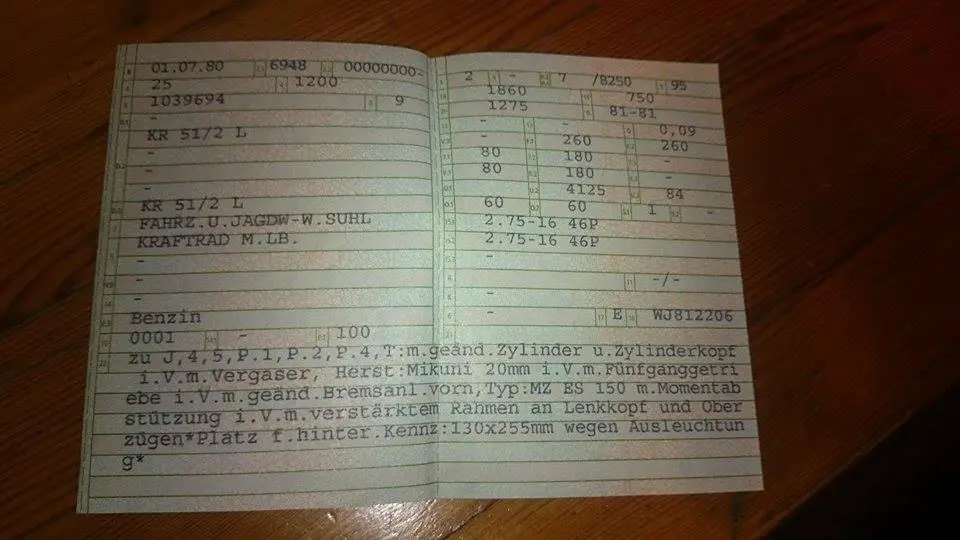 01.07.80 6948 00000000-
25 1200
1039694 9
-
KR 51/2 L
-
-
-
KR 51/2 L
FAHRZ.U.JAGDW-W.SUHL
KRAFTRAD M.LB.
-
-
-
Benzin
0001 - P.3 100
2 - 7 /8250 95
1860 750
1275 81-81
- - 0,09
- 260 260
80 180 -
80 180 -
4125 84
60 60 1 -
2.75-16 46P
2.75-16 46P
-
-/-
-
- E WJ812206
zu J,4,5,P.1,P.2,P.4,T:m.geänd.Zylinder u.Zylinderkopf
i.V.m.Vergaser, Herst:Mikuni 20mm i.V.m.Fünfganggetri
ebe i.V.m.geänd.Bremsanl.vorn,Typ:MZ ES 150 m.Momentab
stützung i.V.m.verstärktem Rahmen an Lenkkopf und Ober
zügen*Platz f.hinter.Kennz:130x255mm wegen Ausleuchtun
g*